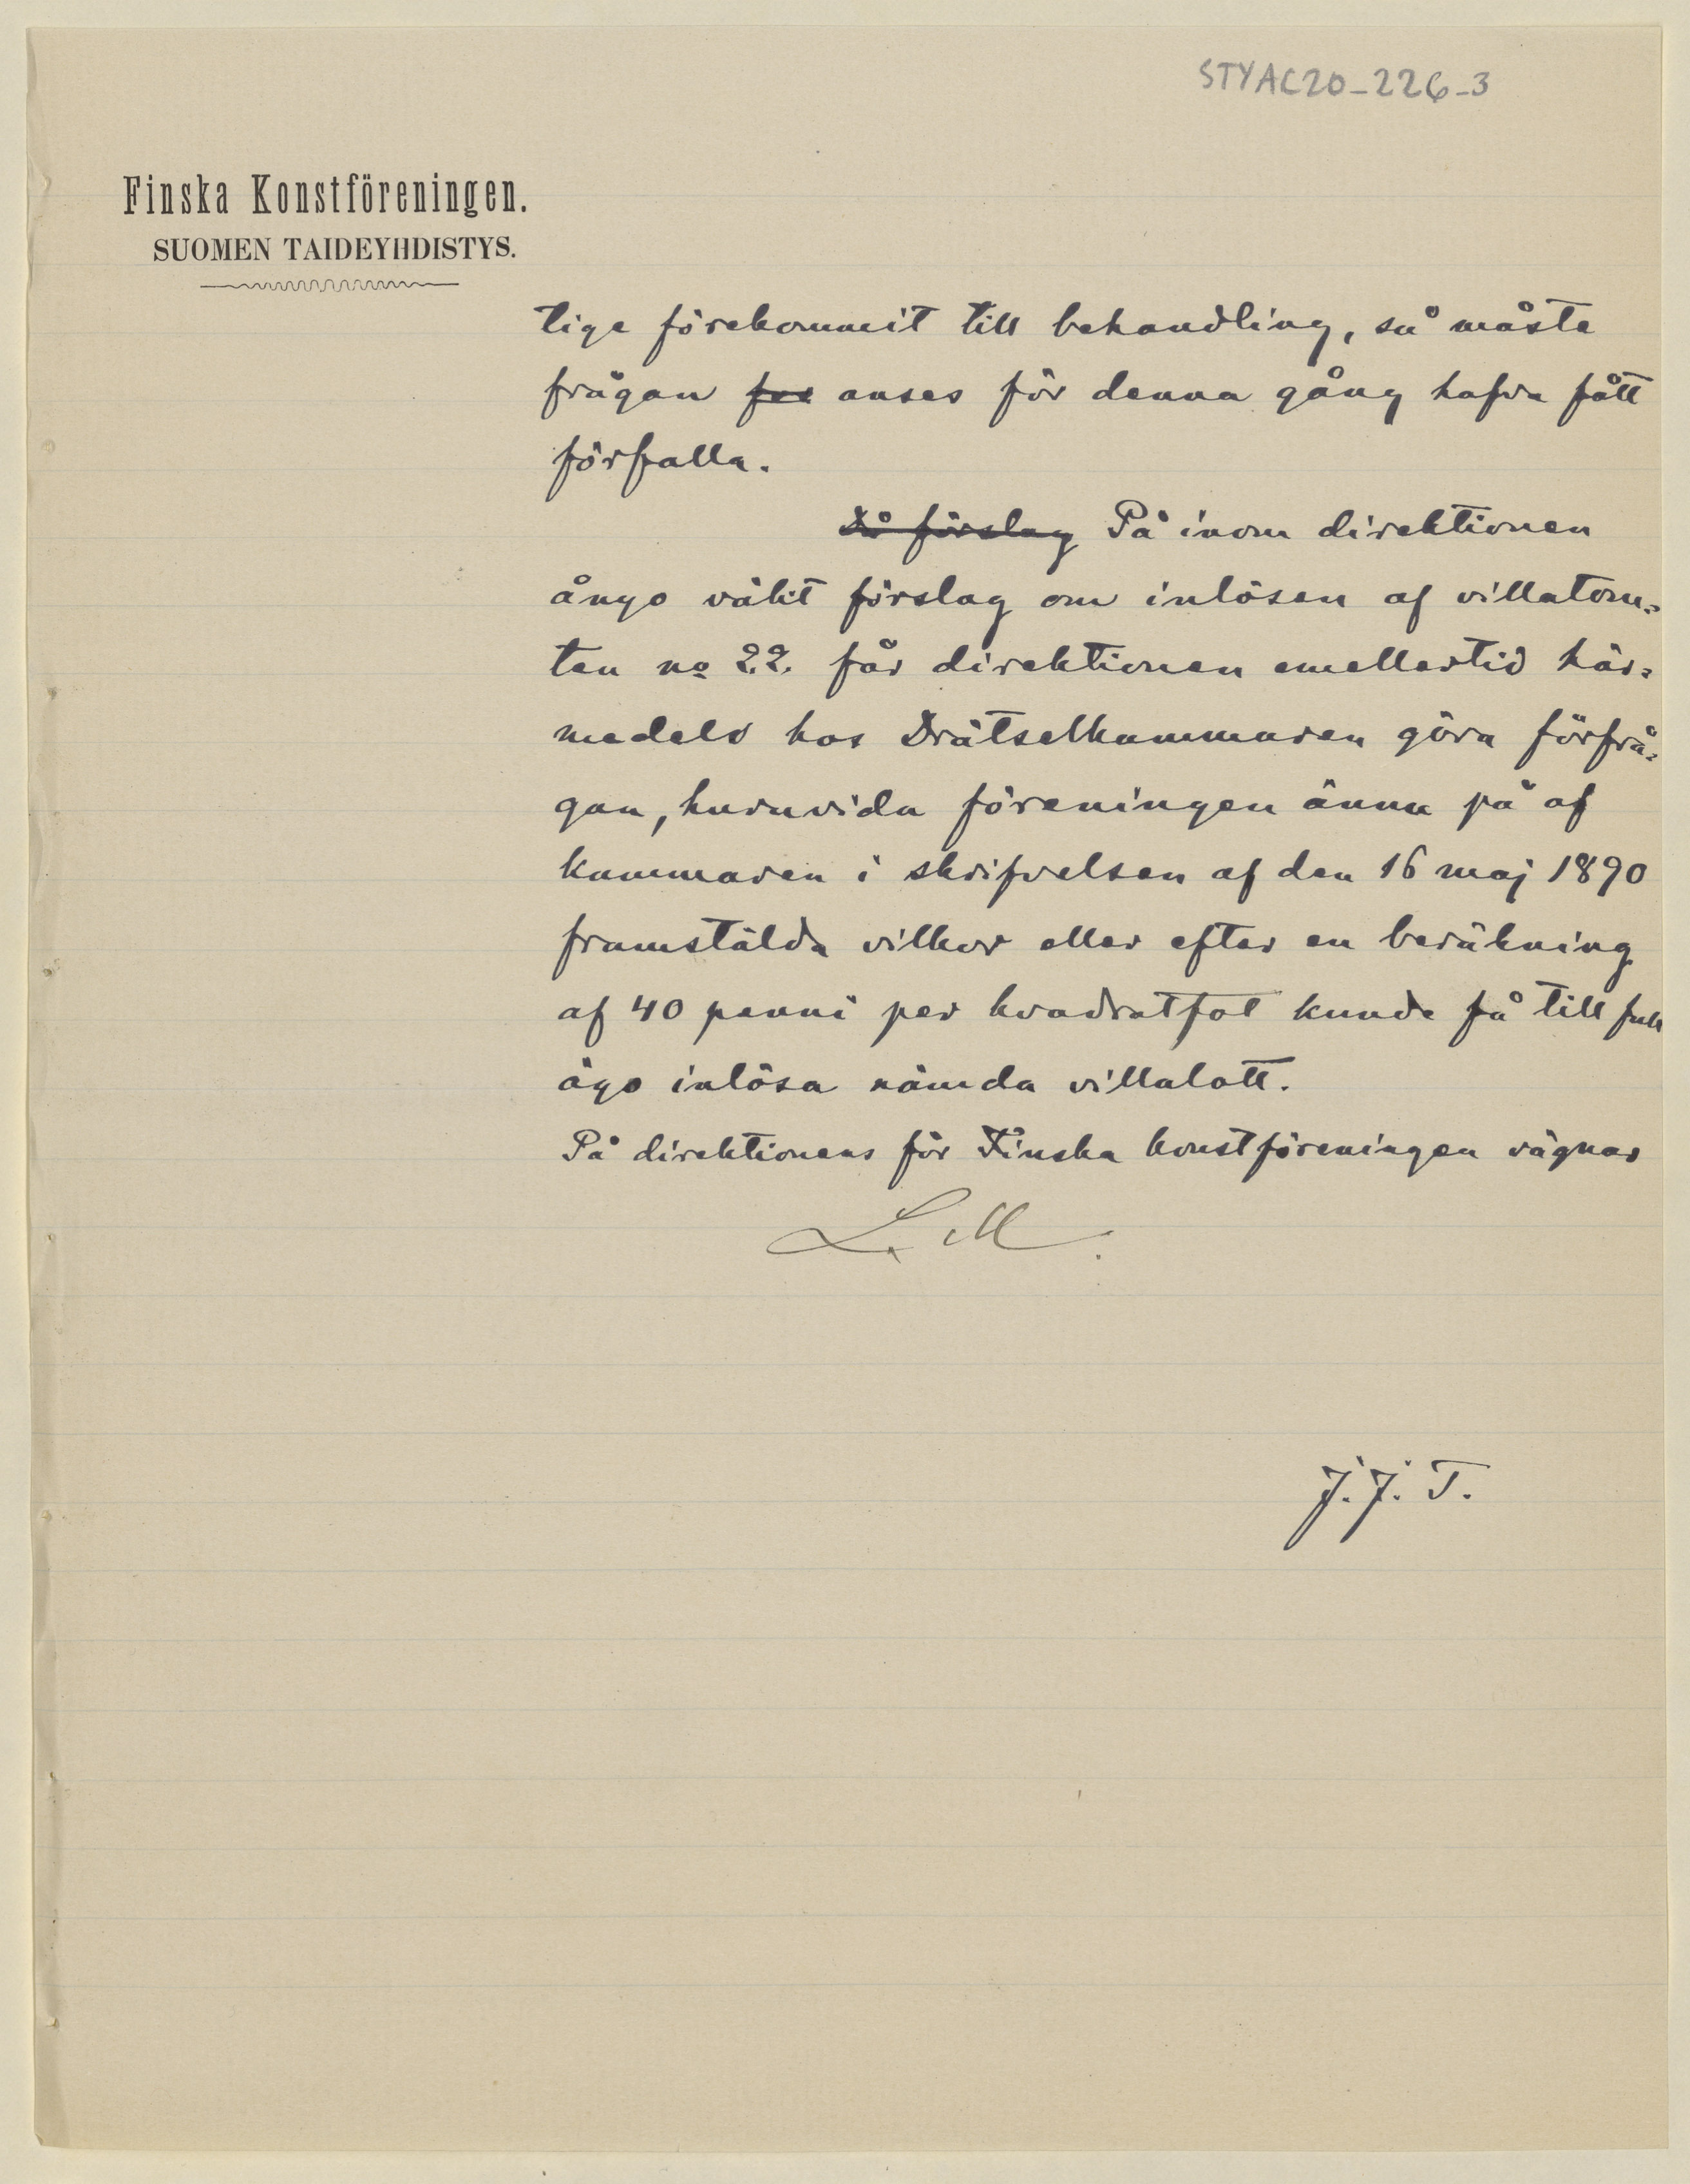 STYAC20_226_3
Finska Konstföreningen.
SUOMEN TAIDEYHDISTYS.
tige förekommit till behandling, så måste
frågan för anses för denna gång hafva fått
förfalla.
Då förslag På inom direktionen
ånyo väkt förslag om inlösen af villatom=
ten no 22. får direktionen emellertid här=
medels hos Drätselkammaren göra förfrå=
gan, huruvida föreningen ännu på af
kammaren i skrifvelsen af den 16 maj 1890
framstälda vilkor eller efter en beräkning
af 40 penni per kvadratfot kunde få till full
ägo inlösa nämda villalott.
På direktionens för Finska konstföreningen vägnar
L. M.
J. J. T.